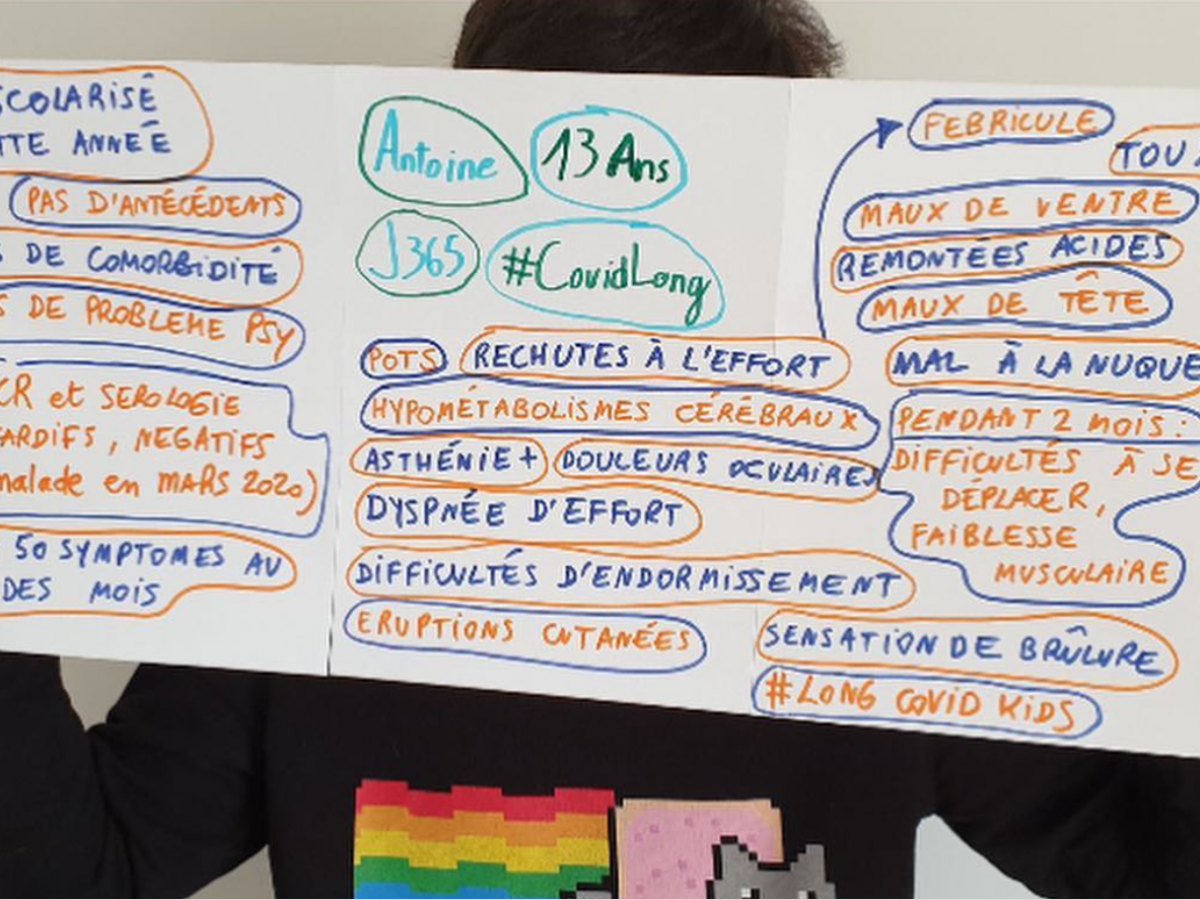 SCOLARISÉ
TTE ANNÉE
PAS D'ANTÉCÉDENTS
DE COMORBIDITÉ
DE PROBLEME PSY
CR et SEROLOGIE
TARDIFS, NEGATIFS
malade en MARS 2020)
50 SYMPTOMES AU
DES MOIS
Antoine 13 Ans
J365 #CovidLong
POTS RECHUTES À L'EFFORT
HYPOMÉTABOLISMES CÉRÉBRAUX
ASTHÉNIE+ DOULEURS OCULAIRES
DYSPNÉE D'EFFORT
DIFFICULTÉS D'ENDORMISSEMENT
ERUPTIONS CUTANÉES
FEBRICULE
TOUX
MAUX DE VENTRE
REMONTÉES ACIDES
MAUX DE TÊTE
MAL À LA NUQUE
PENDANT 2 MOIS:
DIFFICULTÉS À SE
DÉPLACER,
FAIBLESSE
MUSCULAIRE
SENSATION DE BRÛLURE
#LONG COVID KIDS